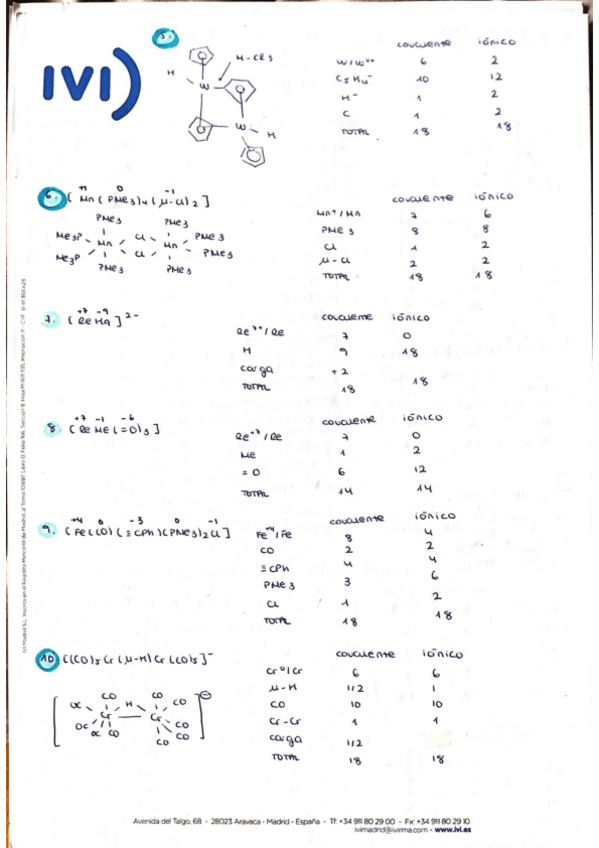 5.
IVI)
H
M-CR3
W
W
H
covalente iónico
W/W4+ 6 2
C5H4- 10 12
H- 1 2
C 1 2
TOTAL 18 18
6. [Mn(PMe3)4(μ-Cl)2]
+1 0 -1
PMe3 PMe3
Me3P Cl PMe3
Mn Mn
Me3P Cl PMe3
PMe3 PMe3
covalente iónico
Mn+/Mn 7 6
PMe3 8 8
Cl 1 2
μ-Cl 2 2
TOTAL 18 18
7. [ReH9]2-
+7 -9
covalente iónico
Re7+/Re 7 0
H 9 18
carga +2
TOTAL 18 18
8. [ReMe(=O)3]
+7 -1 -6
covalente iónico
Re+7/Re 7 0
Me 1 2
=O 6 12
TOTAL 14 14
9. [Fe(CO)(≡CPh)(PMe3)2Cl]
+4 0 -3 0 -1
covalente iónico
Fe+4/Fe 8 4
CO 2 2
≡CPh 4 4
PMe3 3 6
Cl 1 2
TOTAL 18 18
10 [(CO)5Cr(μ-H)Cr(CO)5]-
covalente iónico
Cr0/Cr 6 6
μ-H 1/2 1
CO 10 10
Cr-Cr 1 1
carga 1/2
TOTAL 18 18
CO CO
OC H CO
Cr Cr
OC CO
OC CO CO
CO
Avenida del Talgo, 68 - 28023 Aravaca - Madrid - España - Tf: +34 911 80 29 00 - Fx: +34 911 80 29 10
ivimadrid@ivirma.com - www.ivi.es